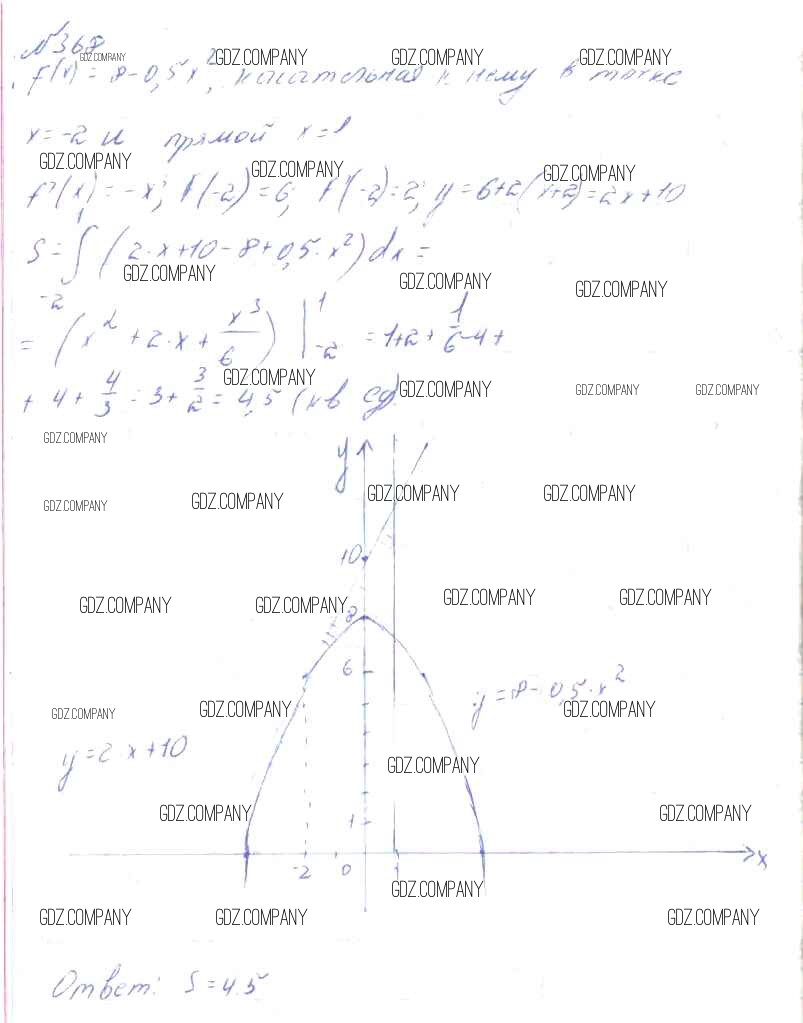 №368
GDZ.COMPANY GDZ.COMPANY GDZ.COMPANY GDZ.COMPANY
f(x) = 8-0,5x², касательная к нему в точке
x=-2 и прямой x=1
GDZ.COMPANY GDZ.COMPANY GDZ.COMPANY
f'(x)=-x; f(-2)=6; f'(-2)=2; y=6+2(x+2)=2x+10
S=∫₋₂¹(2·x+10-8+0,5·x²)dx=
GDZ.COMPANY GDZ.COMPANY GDZ.COMPANY
=(x²+2·x+x³/6)|₋₂¹ = 1+2+1/6-4+
+4+4/3=3+3/2=4,5 (кв ед)
GDZ.COMPANY GDZ.COMPANY GDZ.COMPANY GDZ.COMPANY
GDZ.COMPANY
y
GDZ.COMPANY GDZ.COMPANY GDZ.COMPANY GDZ.COMPANY
10
GDZ.COMPANY GDZ.COMPANY GDZ.COMPANY GDZ.COMPANY
8
6
y=8-0,5·x²
GDZ.COMPANY GDZ.COMPANY GDZ.COMPANY
y=2·x+10
GDZ.COMPANY
GDZ.COMPANY GDZ.COMPANY
1
x
-2 0 1
GDZ.COMPANY
GDZ.COMPANY GDZ.COMPANY GDZ.COMPANY
Ответ: S=4.5